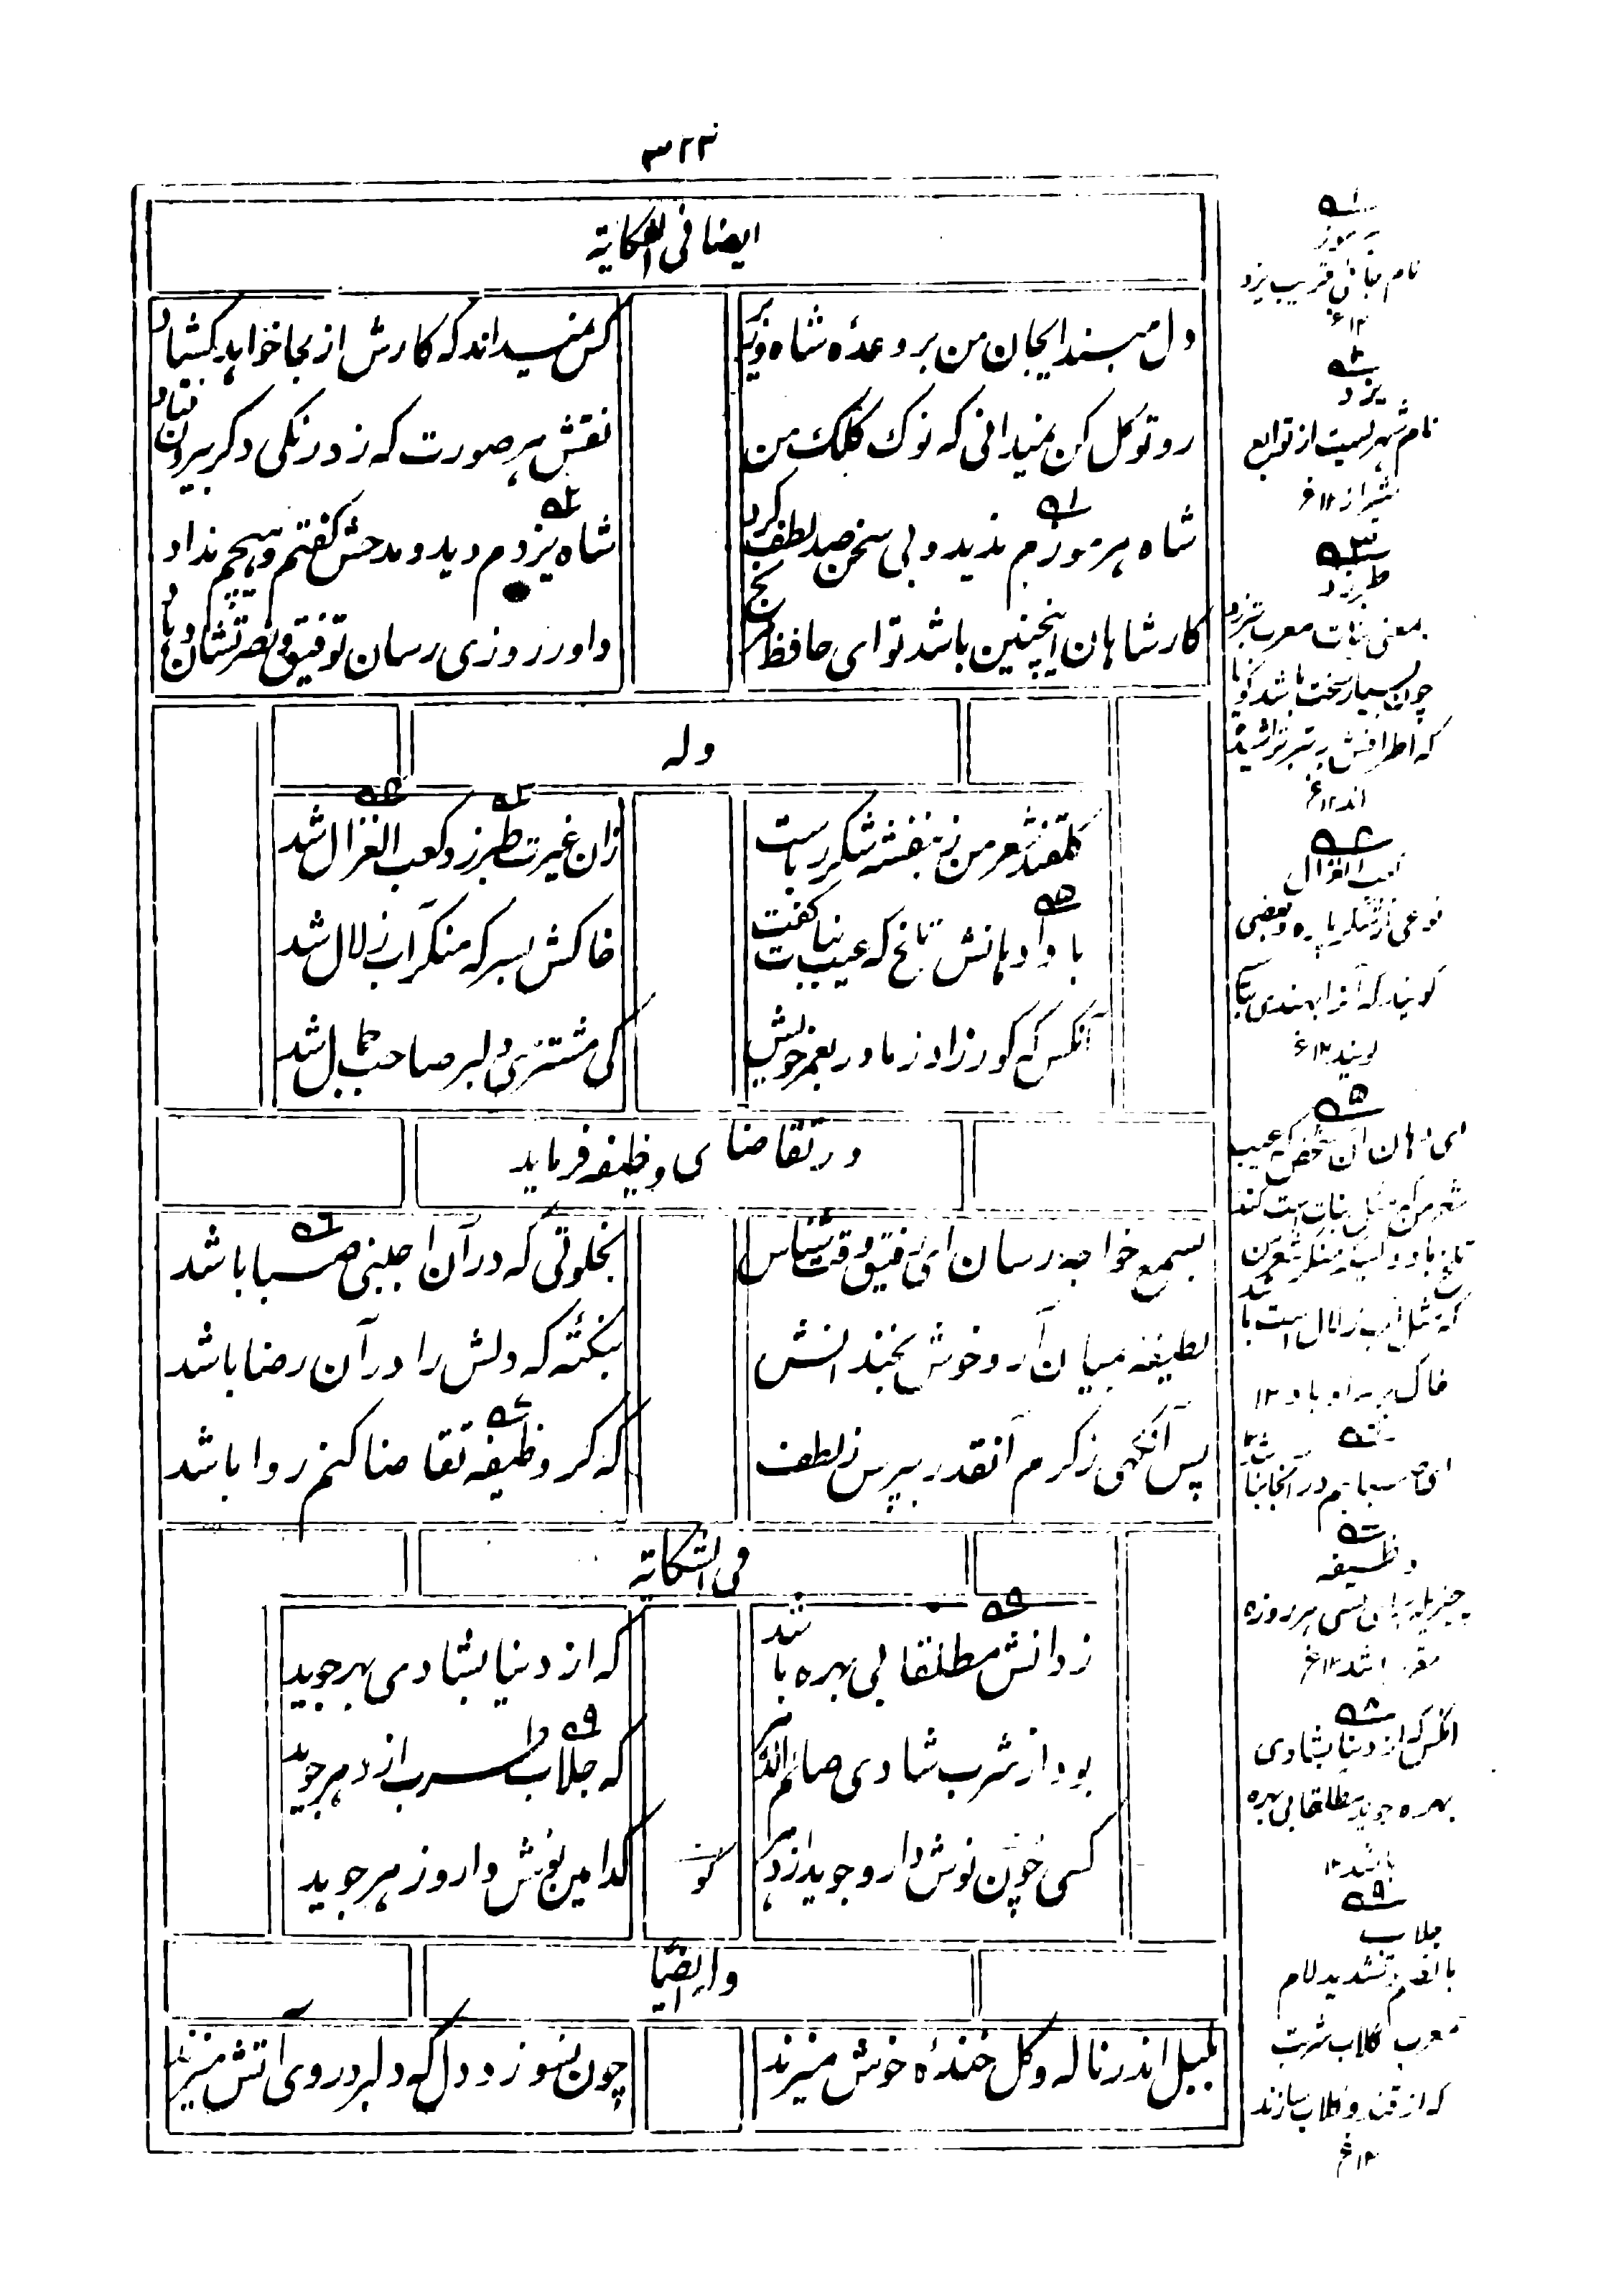 ۳۲۳
ایضا فی الحکایة
دل مبند ایجان من بر وعدهٔ شاه و وزیر
کس نمیداند که کارش از کجا خواهد کشاد
رو توکل کن نمیدانی که نوک کلک من
نقش هر صورت که زد رنکی دکر بیرون فتاد
شاه هرموزم ندید و بی سخن صد لطف کرد
شاه یزدم دید و مدحش کفتم و هیچم نداد
کار شاهان اینچنین باشد تو ای حافظ مرنج
داور روزی رسان توفیق و نصرتشان دهاد
وله
کلقند شعر من ز بنفشه شکر رباست
زان غیرت طبرزد و کعب الغزال شد
بادا دهانش تلخ که عیب نبات کفت
خاکش بسر که منکر آب زلال شد
آنکس که کور زاد ز مادر بعمر خویش
کی مشتری دلبر صاحب جمال شد
در تقاضای وظیفه فرماید
بسمع خواجه رسان ای رفیق وقت شناس
بخلوتی که در آن اجنبی صبا باشد
لطیفه بمیان آر و خوش بخندانش
بنکته که دلش را در آن رضا باشد
پس آنکهی ز کرم آنقدر بپرس ز لطف
که کر وظیفه تقاضا کنم روا باشد
فی الشکایة
ز دانش مطلقا بی بهره باشد
که از دنیا بشادی بهر جوید
بود از شرب شادی صائم الدهر
که جلاب طرب از دهر جوید
کسی خون نوش دارو جوید از دهر
کدامین نوش دارو زهر جوید
وله ایضا
بلبل اندر ناله و کل خندهٔ خوش میزند
چون نسوزد دل که دلبر در وی آتش میزند
۱
هرموز
نام مقامی قریب یزد
۱۲ غ
۲
یزد
نام شهریست از توابع
شیراز ۱۲ غ
۳
طبرزد
بمعنی نبات معرب تبرزد
چون بسیار سخت باشد گویا
که اطرافش به تبر تراشیده
اند ۱۲ غ
۴
کعب الغزال
نوعی از شکر پاره و بعضی
گویند که آنرا بهندی
گویند ۱۲ غ
۵
ای دهان آن شخص که عیب
شعر من که مثل نبات است کند
تلخ باد و آنکه منکر شعر من
که مثل آب زلال است باشد
خاک بر سر او باد ۱۲
۶
ای صبا هم در آنجا نباشد
۷
وظیفه
چیزیکه برای کسی هر روزه
مقرر باشد ۱۲ غ
۸
آنکس که از دنیا بشادی
بهره جوید مطلقا بی بهره
باشد ۱۲
۹
جلاب
بالضم و تشدید لام
معرب کلاب شربت
که از قند و کلاب سازند
۱۲ غ